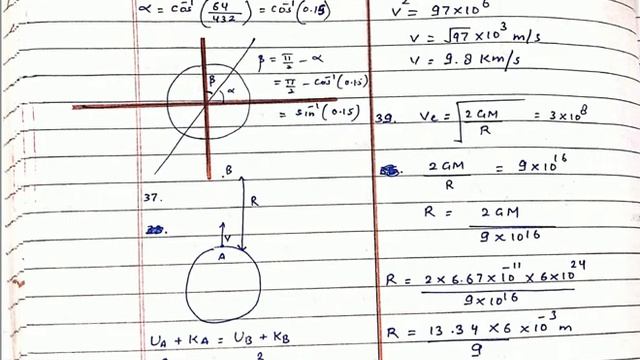 α = cos⁻¹(64/432) = cos⁻¹(0.15)
β = π/2 - α
= π/2 - cos⁻¹(0.15)
= sin⁻¹(0.15)
β
α
37.
B
R
V
A
U_A + K_A = U_B + K_B
2
v² = 97×10⁶
v = √97 × 10³ m/s
v = 9.8 Km/s
39. Ve = √(2GM/R) = 3×10⁸
2GM/R = 9×10¹⁶
R = 2GM/9×10¹⁶
R = 2×6.67×10⁻¹¹×6×10²⁴/9×10¹⁶
R = 13.34×6×10⁻³ m/9